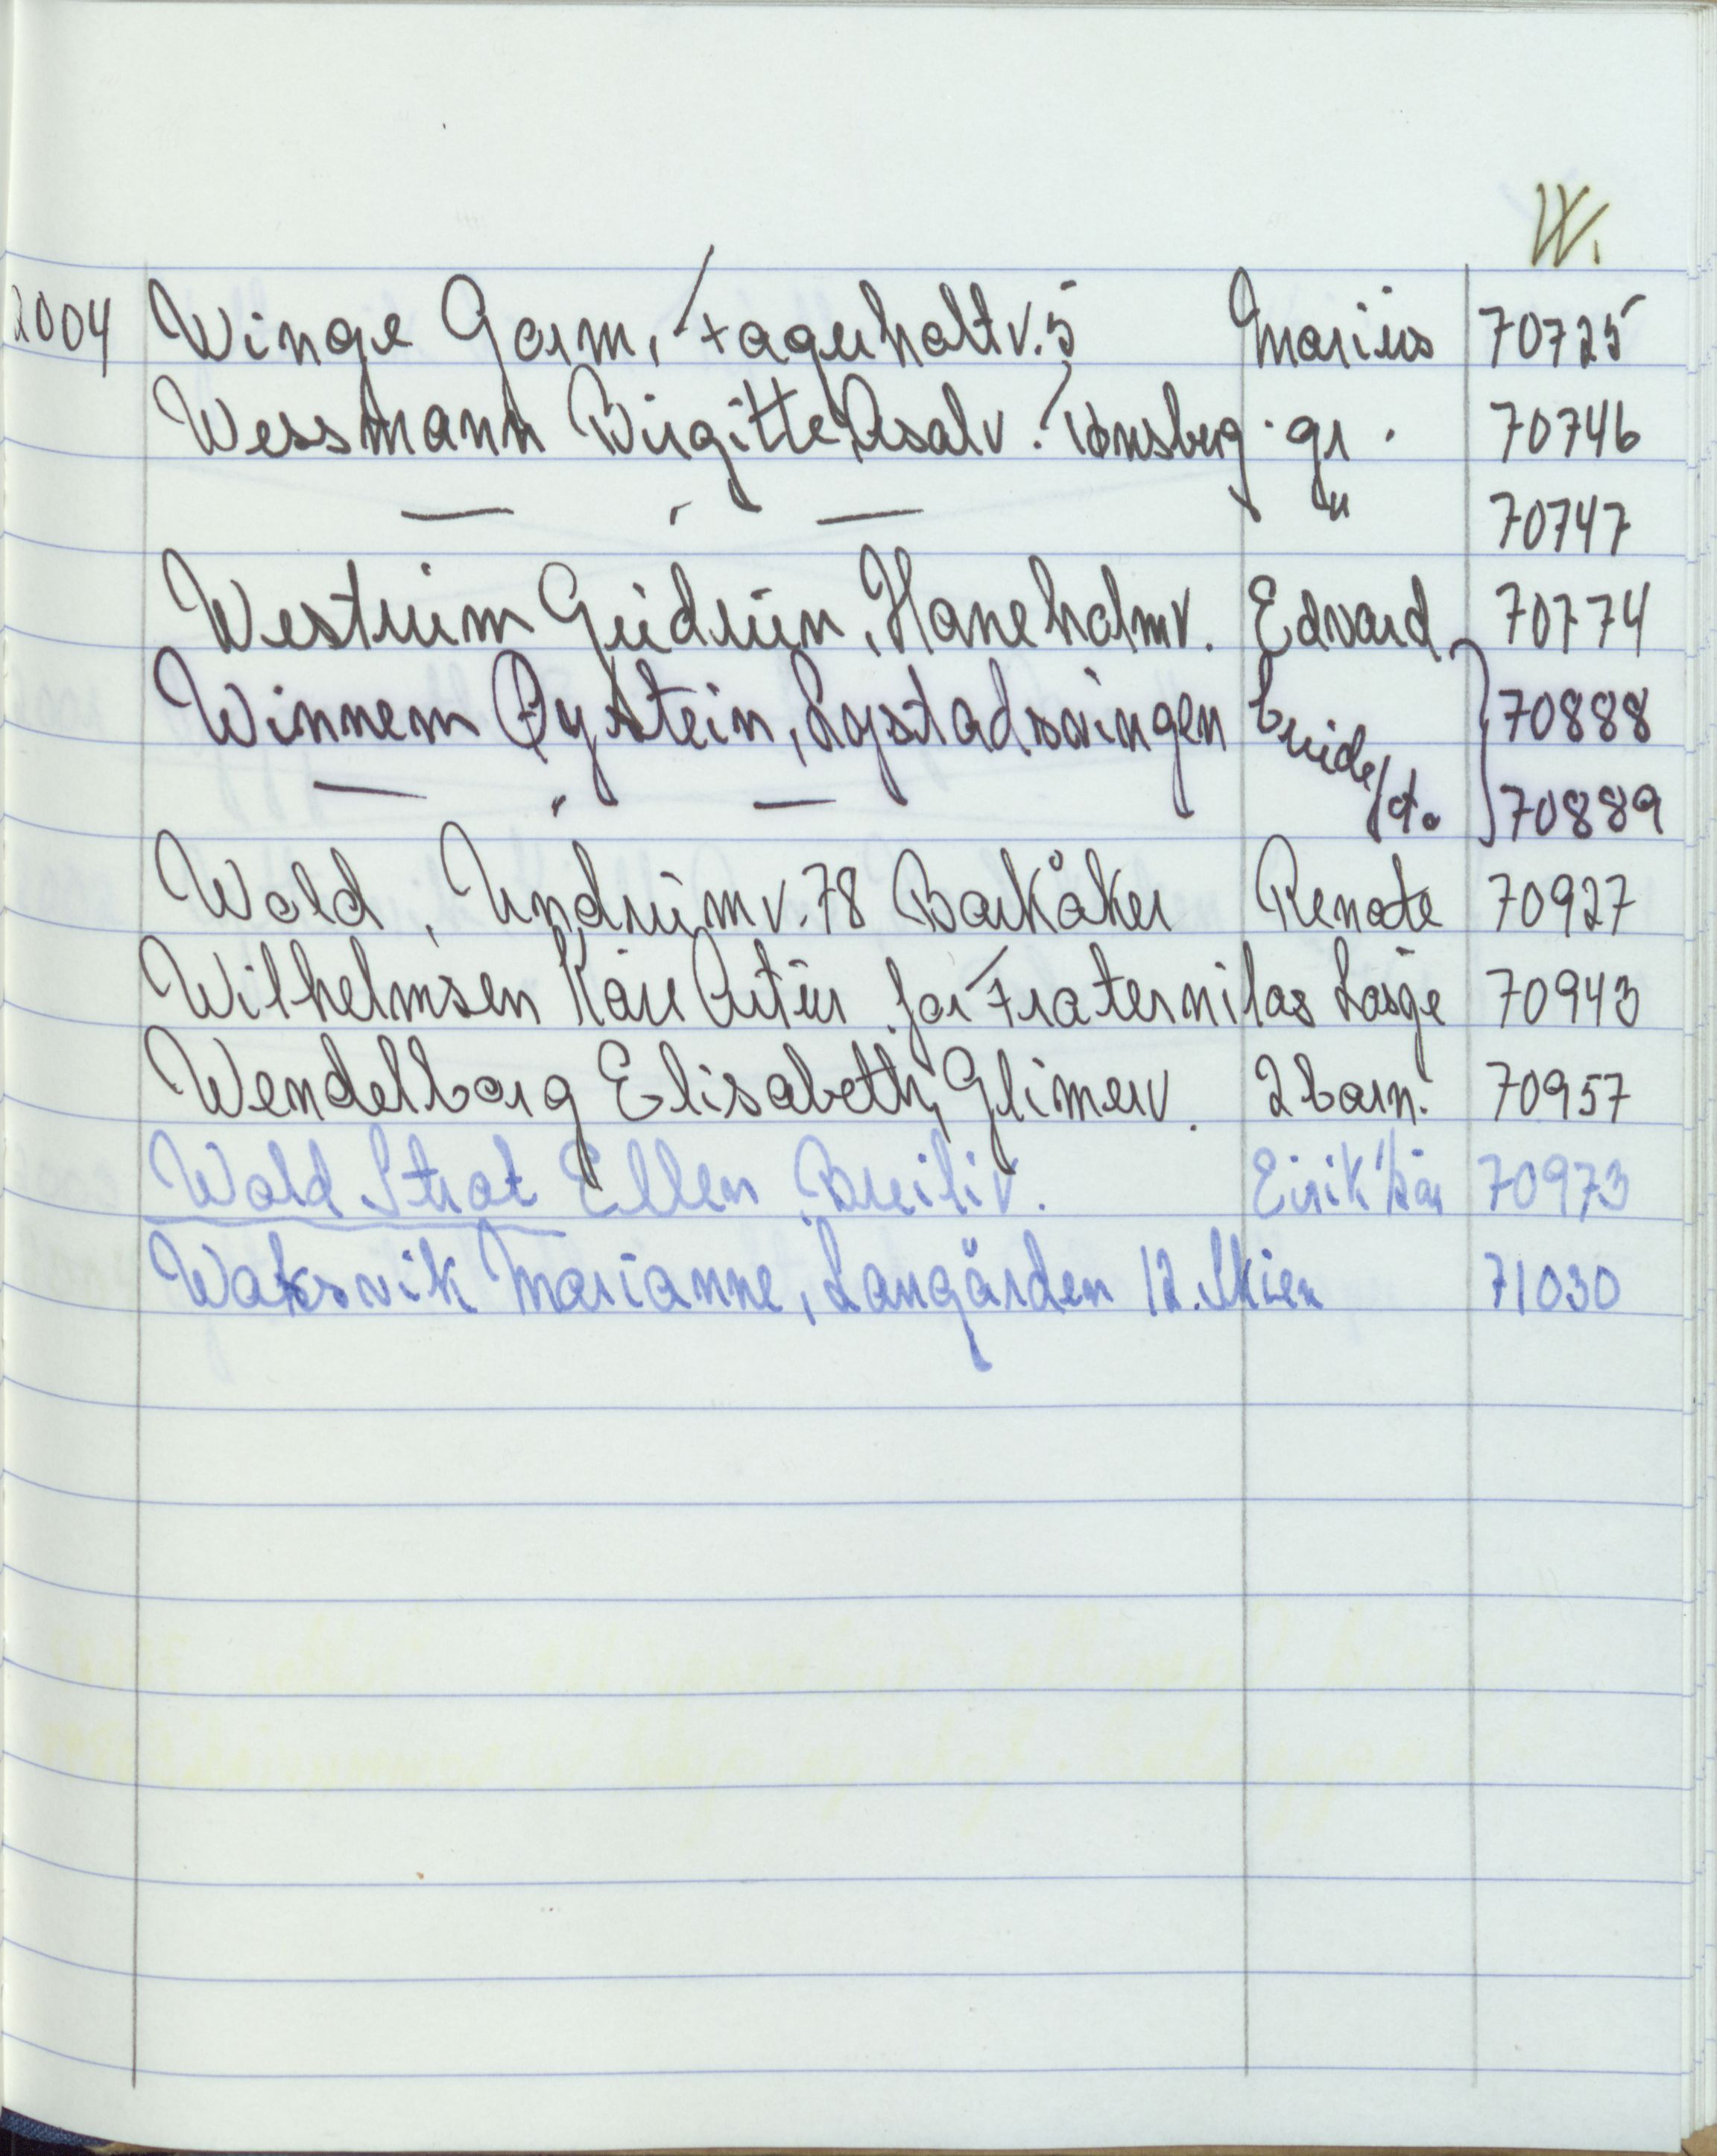 W.
2004 Winge Gorm, Fagerholtv. 5 Marius 70725
Wessmann Birgitte, Asalv. Tønsberg. gr. 70746
— " — " 70747
Westrum Gudrun, Haneholmv. Edvard 70774
Winnem Øystein, Lystadsvingen brude/ 70888
— " — 70889
Wold, Undrumv. 78 Barkåker Renate 70927
Wilhelmsen Kåre Artur for Fraternitas Losje 70943
Wendelborg Elisabeth, Glimerv. 2 barn. 70957
Wold Strat Ellen Breiliv. Eirik 70973
Waksvik Marianne, Langården 12. Skien 71030